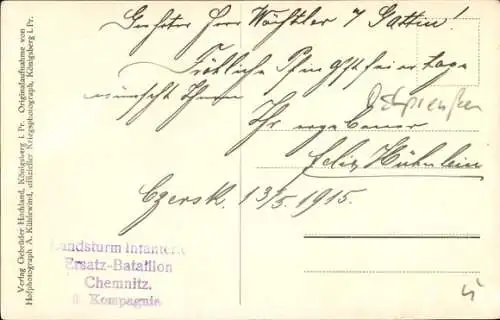 Geehrter Herr Wächtler & Gattin!
Fröhliche Pfingstfeiertage
wünscht Ihnen
Ihr ergebener
Felix Hühnlein
Czersk. 13/5. 1915.
Ostpreußen
Landsturm Infanterie
Ersatz-Bataillon
Chemnitz.
Kompagnie
Verlag Gebrüder Hochland, Königsberg i. Pr. Originalaufnahme von
Hofphotograph A. Kühlewind, offizieller Kriegsphotograph, Königsberg i. Pr.